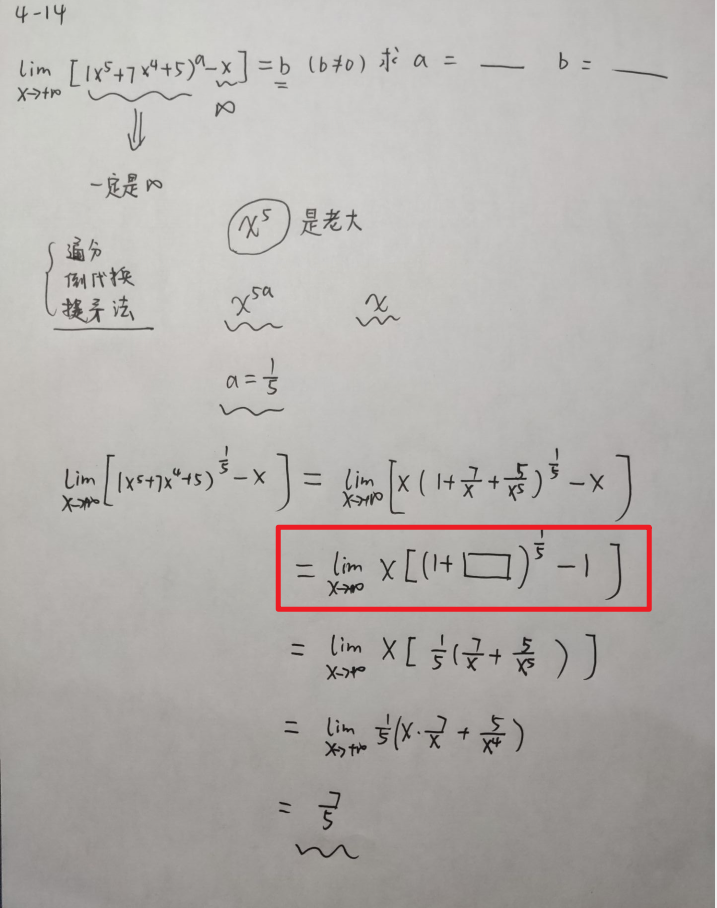 4-14
lim x→+∞ [(x⁵+7x⁴+5)ᵃ-x] = b (b≠0) 求 a = ___ b = ___
∞
一定是∞
x⁵ 是老大
通分
倒代换
提矛法
x⁵ᵃ x
a = 1/5
lim x→+∞ [(x⁵+7x⁴+5)^(1/5) - x] = lim x→+∞ [x(1+7/x+5/x⁵)^(1/5) - x]
= lim x→+∞ x[(1+□)^(1/5) - 1]
= lim x→+∞ x[1/5(7/x+5/x⁵)]
= lim x→+∞ 1/5(x·7/x+5/x⁴)
= 7/5